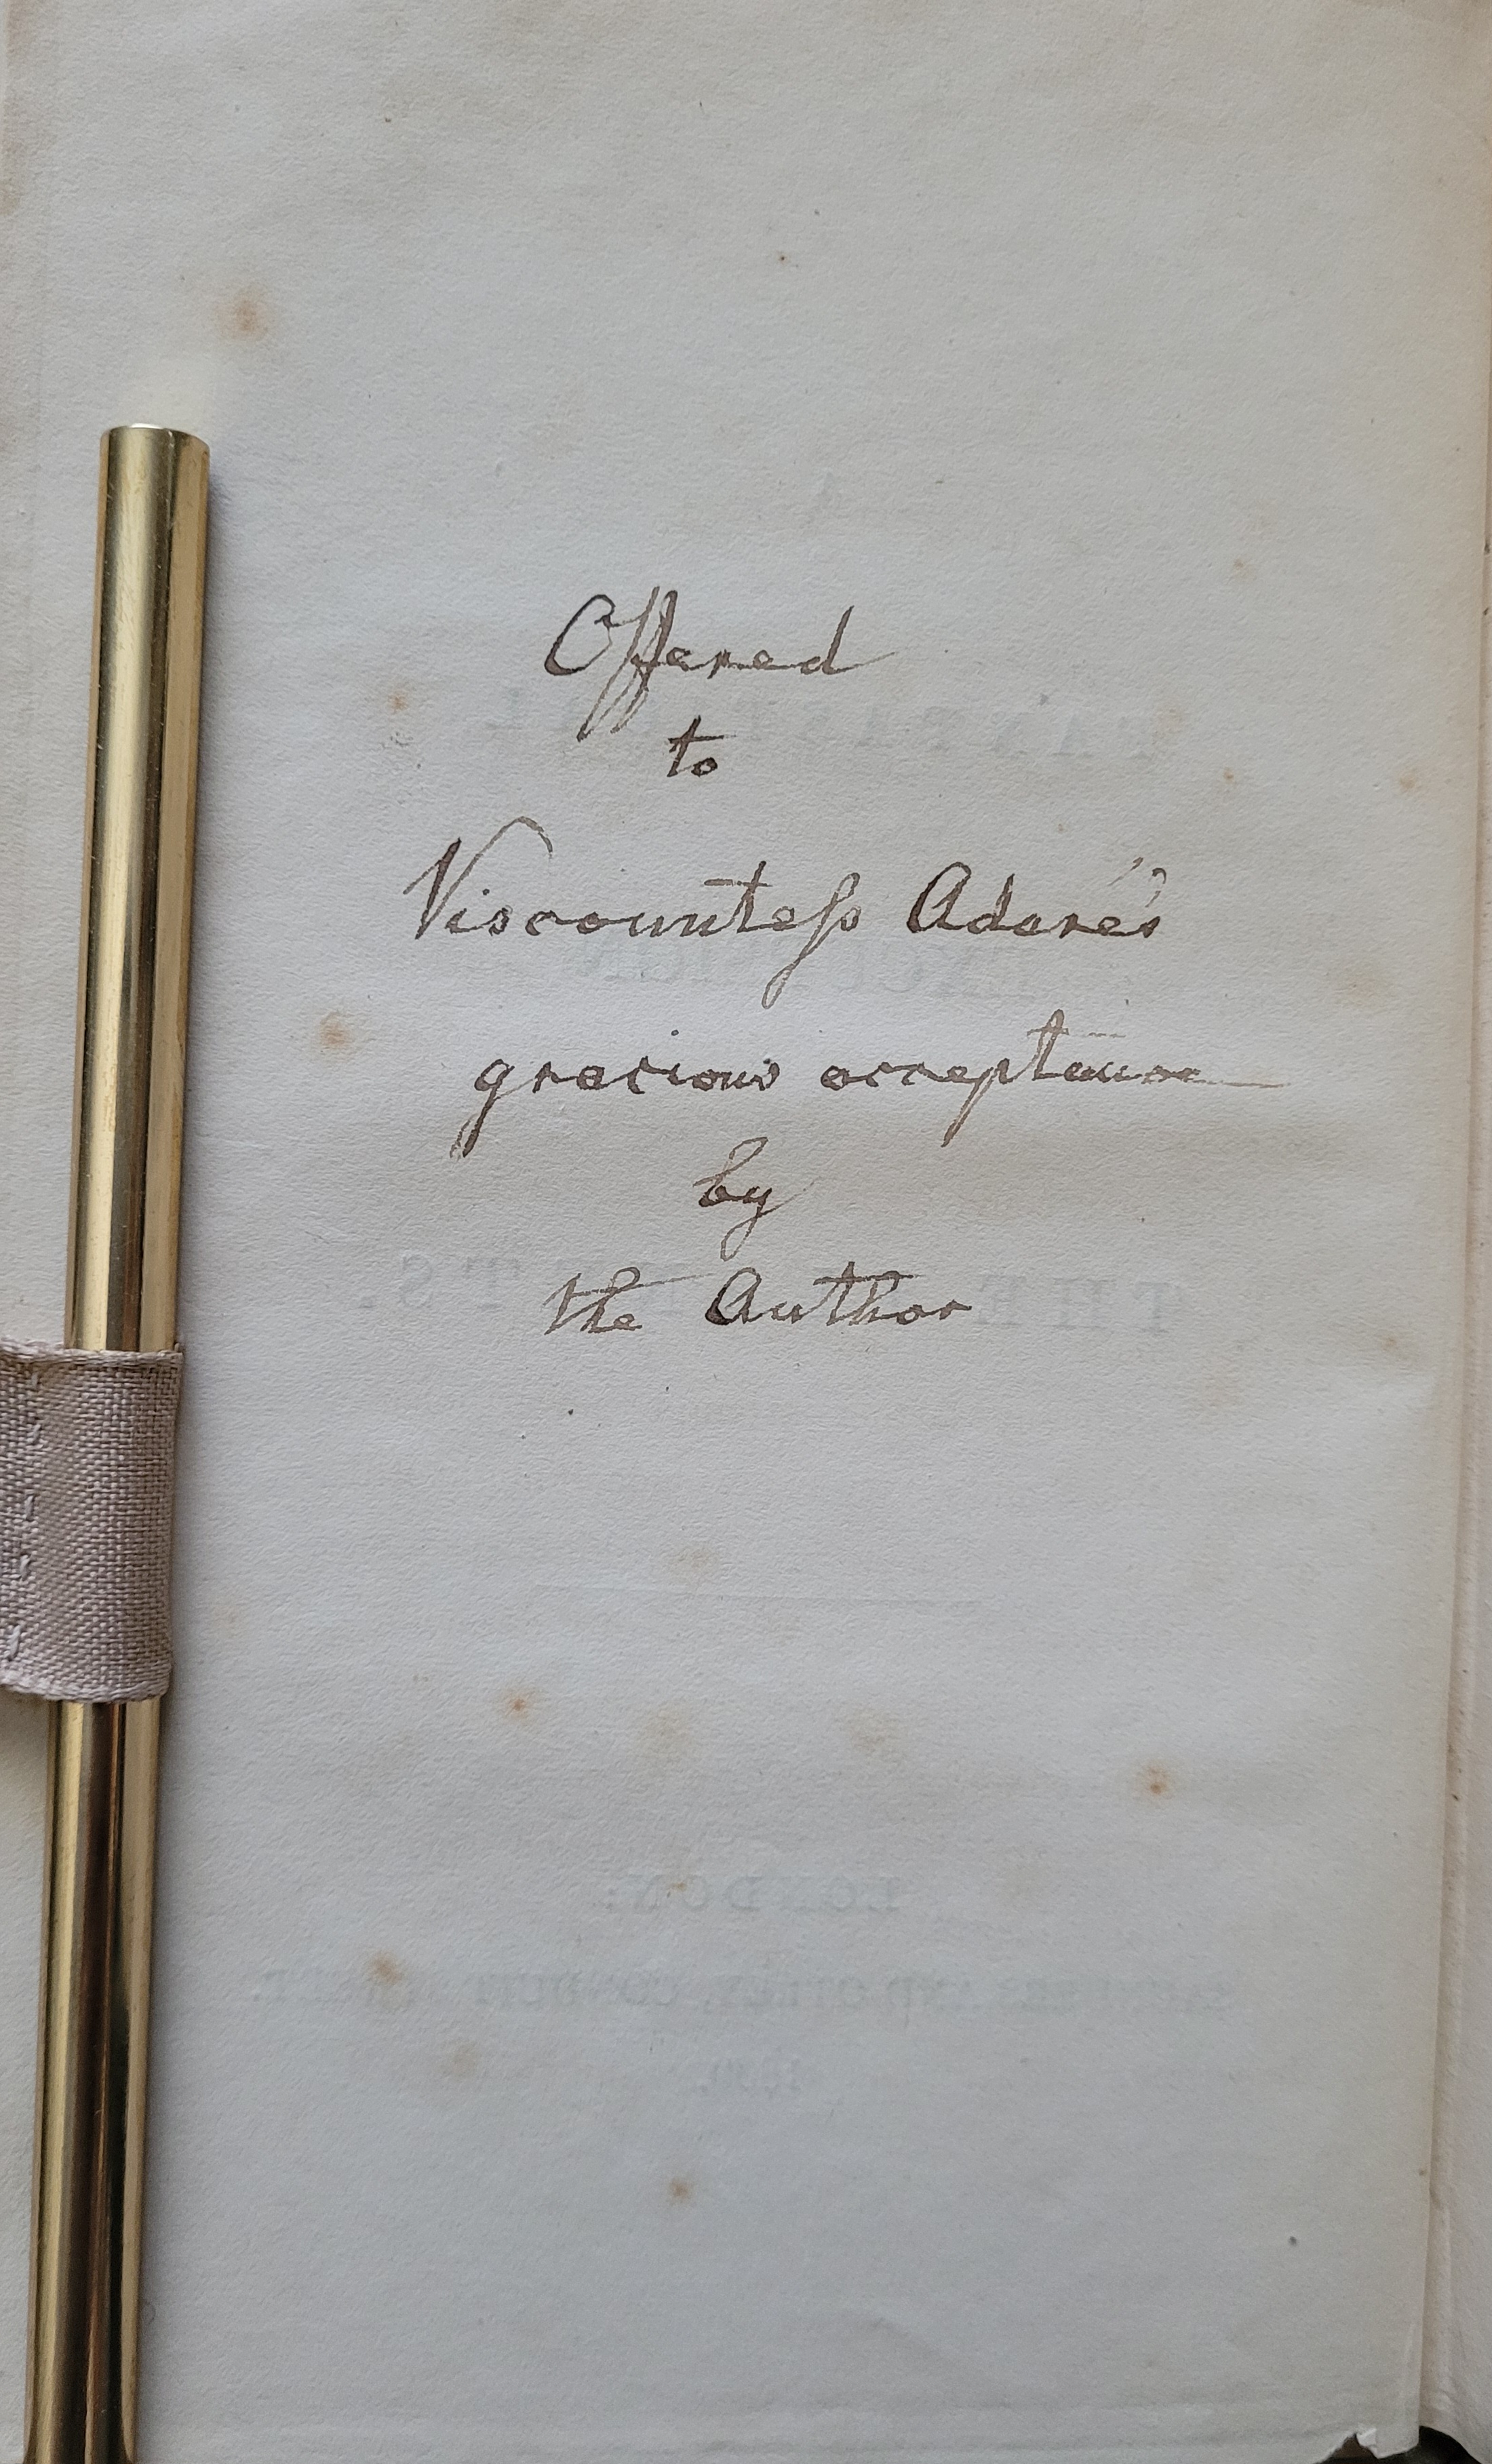 Offered
to
Viscountess Adare's
gracious acceptance
by
the Author
LONDON: